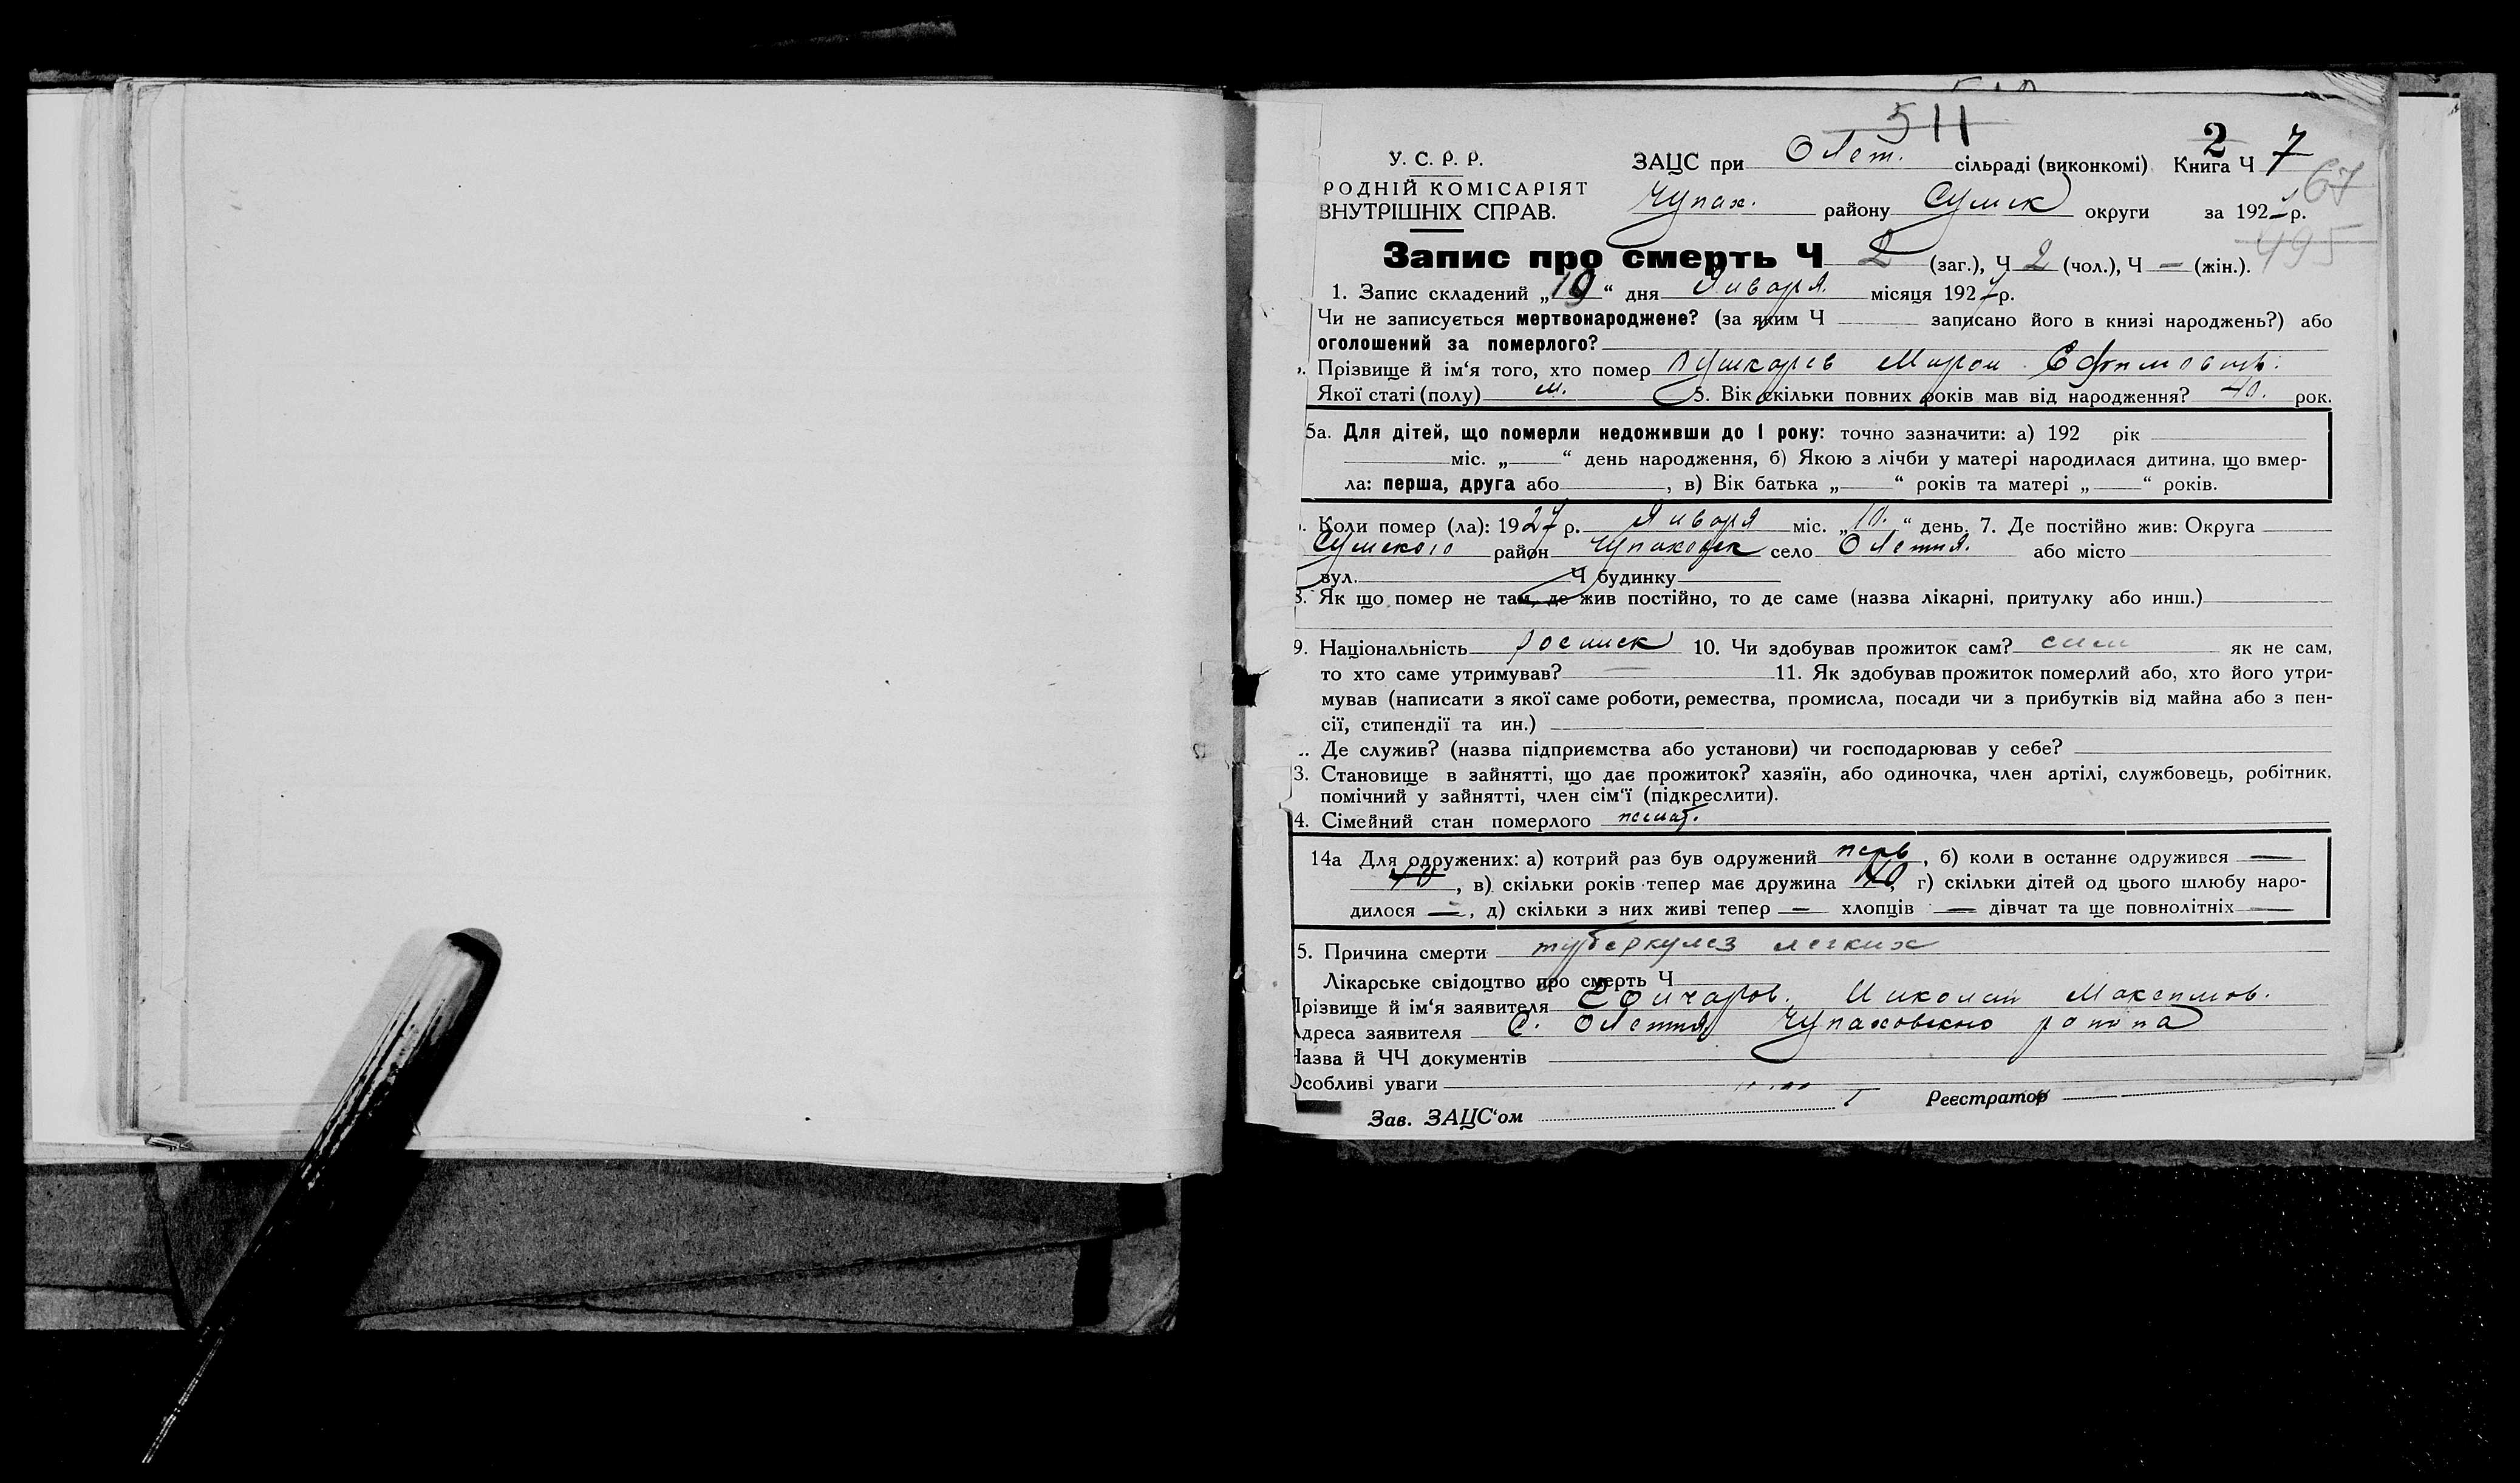 511
У. С. Р. Р. ЗАЦС при Олет. сільраді (виконкомі) Книга Ч 2 7
67
РОДНІЙ КОМІСАРІЯТ
ВНУТРІШНІХ СПРАВ. Чупах. району Сумск округи за 192 р.
495
Запис про смерть Ч 2 (заг.), Ч 2 (чол.), Ч — (жін.).
1. Запис складений „ “ дня Января місяця 1927 р.
Чи не записується мертвонароджене? (за яким Ч записано його в книзі народжень?) або
оголошений за померлого?
Прізвище й ім‘я того, хто помер Пушкарев Мирон Ефимович.
Якої статі (полу) м. 5. Вік скільки повних років мав від народження? 40. рок.
5а. Для дітей, що померли недоживши до 1 року: точно зазначити: а) 192 рік
міс. „ “ день народження, б) Якою з лічби у матері народилася дитина, що вмер-
ла: перша, друга або , в) Вік батька „ “ років та матері „ “ років.
Коли помер (ла): 1927 р. Января міс. „10.“ день. 7. Де постійно жив: Округа
Сумского район Чупаховск село Олетня. або місто
вул. Ч будинку
8. Як що помер не там, де жив постійно, то де саме (назва лікарні, притулку або инш.)
9. Національність 10. Чи здобував прожиток сам? сам як не сам,
то хто саме утримував? — 11. Як здобував прожиток померлий або, хто його утри-
мував (написати з якої саме роботи, ремества, промисла, посади чи з прибутків від майна або з пен-
сії, стипендії та ин.)
Де служив? (назва підприємства або установи) чи господарював у себе?
3. Становище в зайнятті, що дає прожиток? хазяїн, або одиночка, член артілі, службовець, робітник,
помічний у зайнятті, член сім‘ї (підкреслити).
4. Сімейний стан померлого женат.
14а Для одружених: а) котрий раз був одружений перв, б) коли в останнє одружився —
40, в) скільки років тепер має дружина 40, г) скільки дітей од цього шлюбу наро-
дилося —, д) скільки з них живі тепер — хлопців — дівчат та ще повнолітніх —
5. Причина смерти туберкулез легких
Лікарське свідоцтво про смерть Ч
Прізвище й ім‘я заявителя Гончаров. Николай Максимов.
Адреса заявителя С. Олетня Чупаховского
Назва й ЧЧ документів
Особливі уваги
Зав. ЗАЦС‘ом Реєстратор